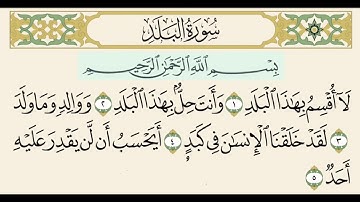 سُورَةُ البَلَدِ
بِسْمِ اللَّهِ الرَّحْمَٰنِ الرَّحِيمِ
لَآ أُقْسِمُ بِهَٰذَا ٱلْبَلَدِ ١ وَأَنتَ حِلٌّۢ بِهَٰذَا ٱلْبَلَدِ ٢ وَوَالِدٍ وَمَا وَلَدَ
٣ لَقَدْ خَلَقْنَا ٱلْإِنسَٰنَ فِي كَبَدٍ ٤ أَيَحْسَبُ أَن لَّن يَقْدِرَ عَلَيْهِ
أَحَدٌ ٥